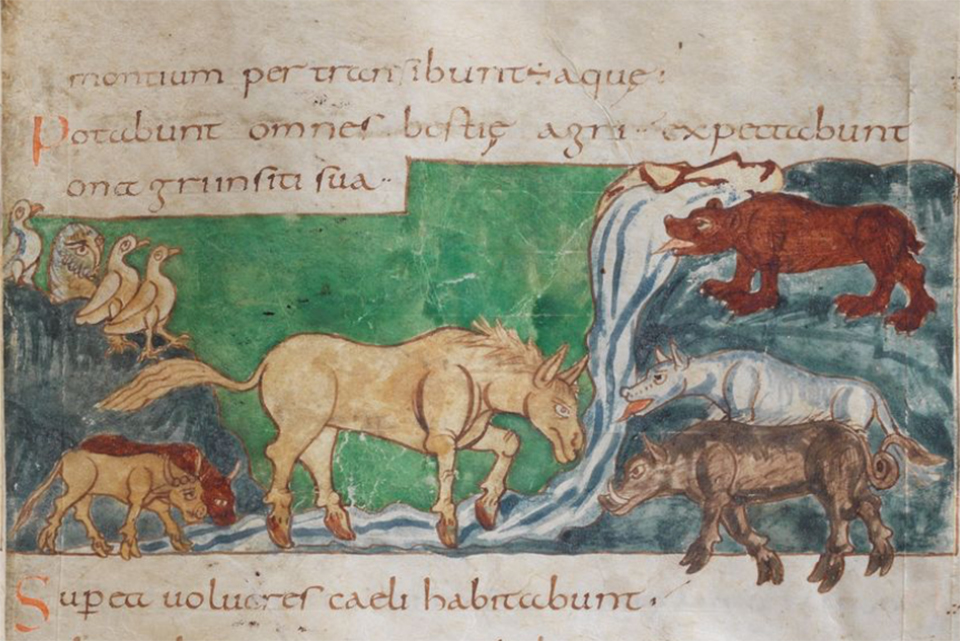 montium per transibunt aquę:
Potabunt omnes bestię agri·· expectabunt
onagri insiti sua··
Super ea uolucres caeli habitabunt·